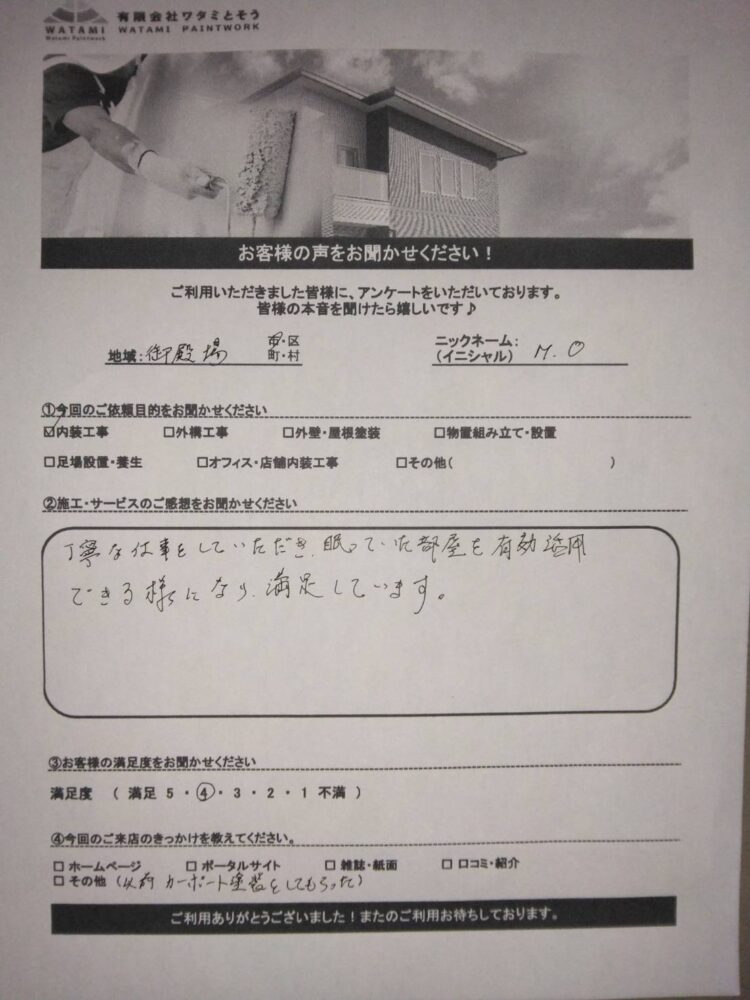 WATAMI
Watami Paintwork
有限会社ワタミとそう
WATAMI PAINTWORK
お客様の声をお聞かせください！
ご利用いただきました皆様に、アンケートをいただいております。
皆様の本音を聞けたら嬉しいです♪
地域：御殿場 市・区 町・村
ニックネーム：
（イニシャル） M.O
①今回のご依頼目的をお聞かせください
☑内装工事 □外構工事 □外壁・屋根塗装 □物置組み立て・設置
□足場設置・養生 □オフィス・店舗内装工事 □その他（ ）
②施工・サービスのご感想をお聞かせください
丁寧な仕事をしていただき、眠っていた部屋を有効活用
できる様になり、満足しています。
③お客様の満足度をお聞かせください
満足度 （ 満足 5 ・ ④ ・ 3 ・ 2 ・ 1 不満 ）
④今回のご来店のきっかけを教えてください。
□ ホームページ □ ポータルサイト □ 雑誌・紙面 □ 口コミ・紹介
□ その他 （以前 カーポート塗装をしてもらった）
ご利用ありがとうございました！またのご利用お待ちしております。